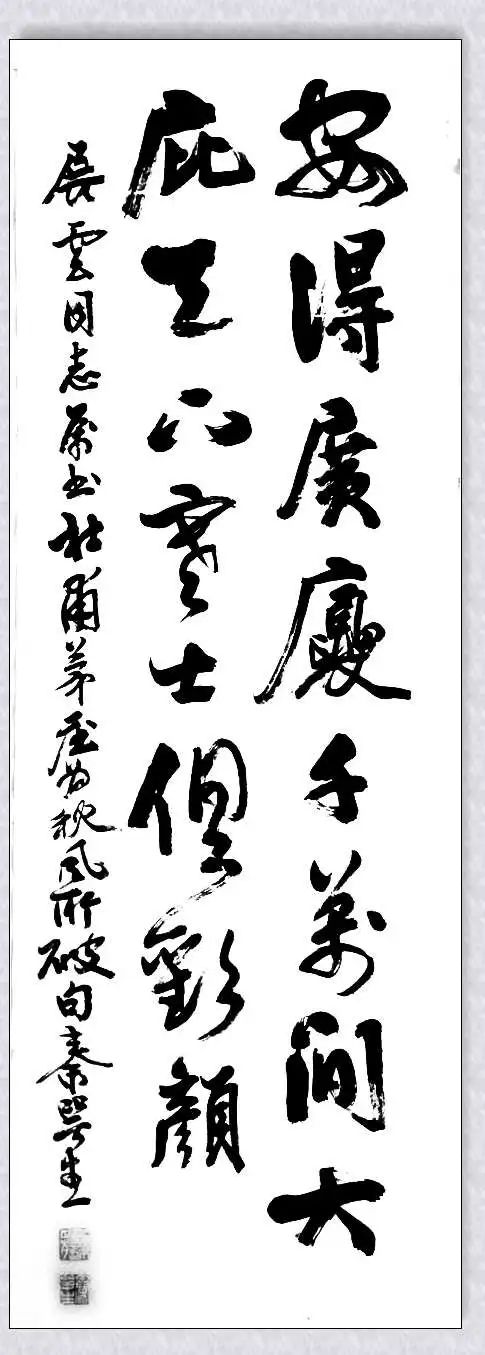 安得廣廈千萬間大
庇天下寒士俱歡顏
展雲同志屬書杜甫茅屋為秋風所破句秦咢生